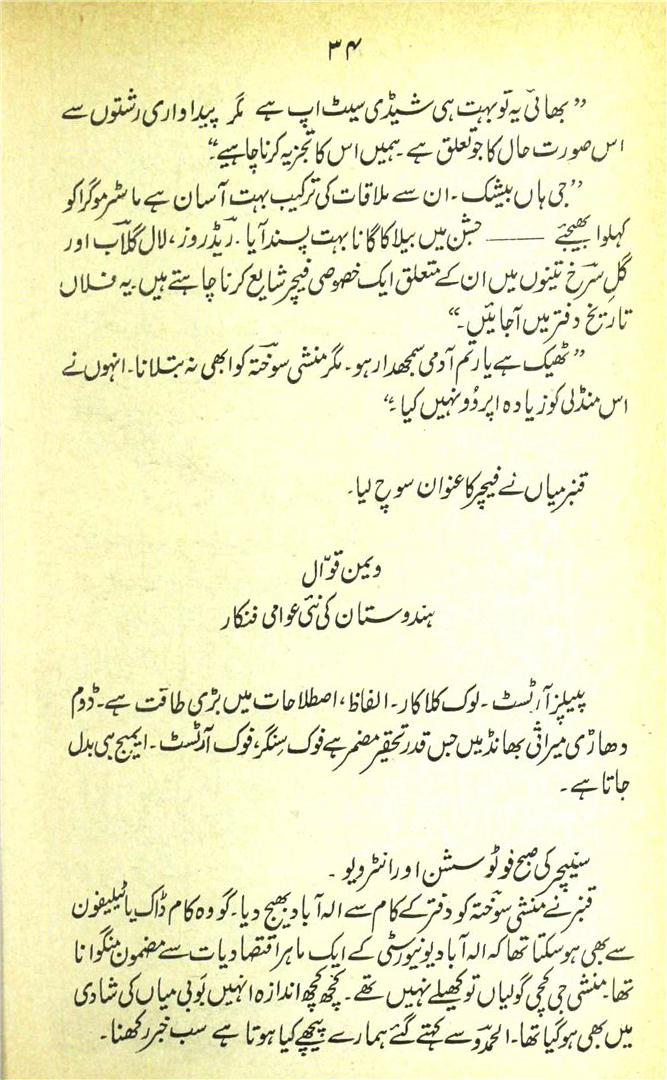 ۳۴
”بھائی یہ تو بہت ہی شیڈی سیٹ اپ ہے مگر پیداواری رشتوں سے
اس صورت حال کا جو تعلق ہے۔ ہمیں اس کا تجزیہ کرنا چاہیے۔“
”جی ہاں بیشک۔ ان سے ملاقات کی ترکیب بہت آسان ہے ماسٹر موگرا کو
کہلوا بھیجئے ——— جشن میں بیلا کا گانا بہت پسند آیا۔ ریڈ روز، لال گلاب اور
گل سرخ تینوں میں ان کے متعلق ایک خصوصی فیچر شایع کرنا چاہتے ہیں۔ یہ فلاں
تاریخ دفتر میں آجائیں۔“
”ٹھیک ہے یار تم آدمی سمجھدار ہو۔ مگر منشی سوختہ کو ابھی نہ بتلانا۔ انہوں نے
اس منڈلی کو زیادہ اپروو نہیں کیا۔“
قنبر میاں نے فیچر کا عنوان سوچ لیا۔
ویمن قوّال
ہندوستان کی نئی عوامی فنکار
پیپلز آرٹسٹ۔ لوک کلاکار۔ الفاظ، اصطلاحات میں بڑی طاقت ہے۔ ڈوم
دھاڑی میراثی بھانڈ میں جس قدر تحقیر مضمر ہے فوک سنگر، فوک آرٹسٹ۔ ایمیج ہی بدل
جاتا ہے۔
سنیچر کی صبح فوٹو سشن اور انٹرویو۔
قنبر نے منشی سوختہ کو دفتر کے کام سے الہ آباد بھیج دیا۔ گو وہ کام ڈاک یا ٹیلیفون
سے بھی ہو سکتا تھا کہ الہ آباد یونیورسٹی کے ایک ماہر اقتصادیات سے مضمون منگوانا
تھا۔ منشی جی کچی گولیاں تو کھیلے نہیں تھے۔ کچھ کچھ اندازہ انہیں بوبی میاں کی شادی
میں بھی ہو گیا تھا۔ الحمدو سے کہتے گئے ہمارے پیچھے کیا ہوتا ہے سب خبر رکھنا۔